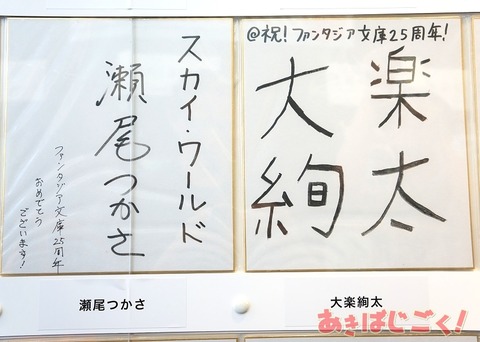 スカイ・ワールド
瀬尾つかさ
ファンタジア文庫25周年
おめでとう
ございます!
瀬尾つかさ
@祝!ファンタジア文庫25周年!
大楽
絢太
大楽絢太
あきばじごく!